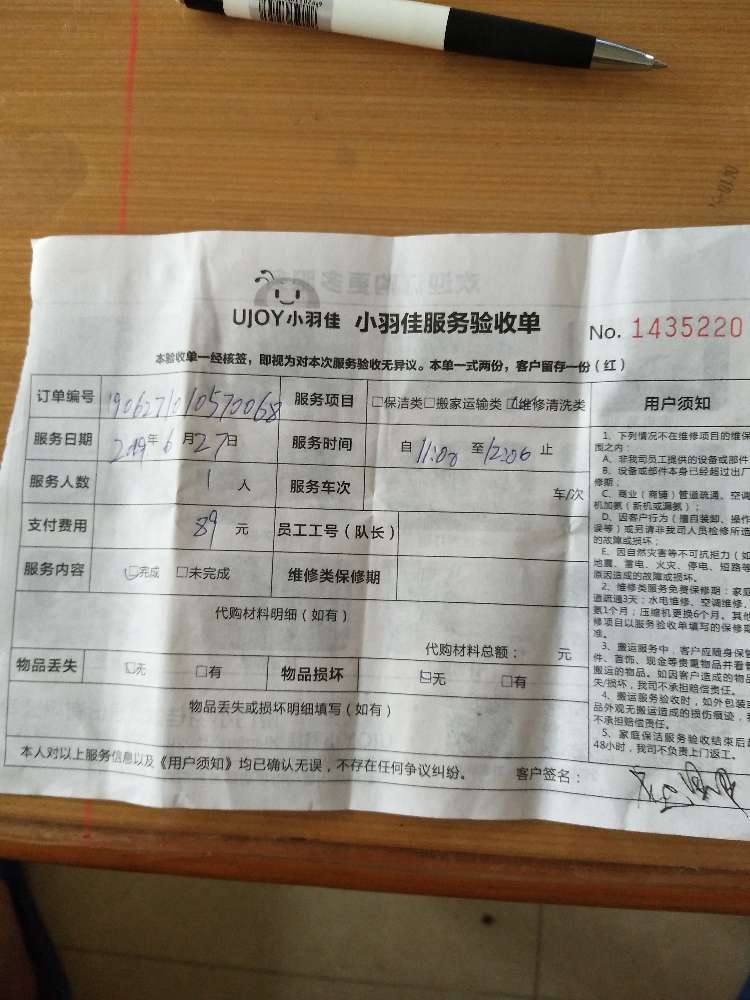 UJOY小羽佳 小羽佳服务验收单 No. 1435220
本验收单一经核签，即视为对本次服务验收无异议。本单一式两份，客户留存一份（红）
订单编号 1906271010570068 服务项目 □保洁类□搬家运输类☑维修清洗类
服务日期 2019年6月27日 服务时间 自 11:00 至 12:06 止
服务人数 1 人 服务车次 车/次
支付费用 89 元 员工工号（队长）
服务内容 ☑完成 □未完成 维修类保修期
代购材料明细（如有）
代购材料总额： 元
物品丢失 ☑无 □有 物品损坏 ☑无 □有
物品丢失或损坏明细填写（如有）
本人对以上服务信息以及《用户须知》均已确认无误，不存在任何争议纠纷。 客户签名：
用户须知
1、下列情况不在维修项目的维保
围之内：
A、非我司员工提供的设备或部件
B、设备或部件本身已经超过出厂
修期；
C、商业（商铺）管道疏通、空调
机加氨（新机或漏氨）；
D、因客户行为（擅自装卸、操作
误等）或另请非我司人员检修所造
的故障或损坏；
E、因自然灾害等不可抗拒力（如
地震、雷电、火灾、停电、短路等
原因造成的故障或损坏。
2、维修类服务免费保修期：家庭
道疏通3天；水电维修、空调维修、
氨1个月；压缩机更换6个月。其他
修项目以服务验收单填写的保修期
准。
3、搬运服务中，客户应随身保管
件、首饰、现金等贵重物品并看管
搬运的物品。如因客户造成的物品
失/损坏，我司不承担赔偿责任。
4、搬运服务验收时，如外包装或
品外观无搬运造成的损伤痕迹，我
不承担赔偿责任。
5、家庭保洁服务验收结束后超
48小时，我司不负责上门返工。